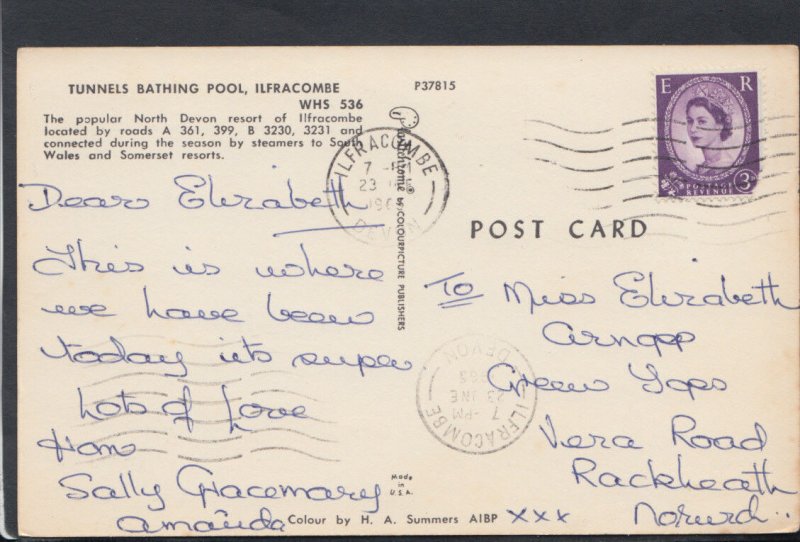 TUNNELS BATHING POOL, ILFRACOMBE
WHS 536
The popular North Devon resort of Ilfracombe
located by roads A 361, 399, B 3230, 3231 and
connected during the season by steamers to South
Wales and Somerset resorts.
P37815
E R
POSTAGE
REVENUE
3D
ILFRACOMBE
7 -PM
23
DEVON
by COLOURPICTURE PUBLISHERS
POST CARD
Dear Elizabeth
This is where
we have been
today its super
Lots of Love
from
Sally Gracemary
Amanda
To Miss Elizabeth
Green Tops
Vera Road
Rackheath
Norwich.
ILFRACOMBE
7 -PM
23 JNE
1963
DEVON
Made in
U.S.A.
Colour by H. A. Summers AIBP
xxx